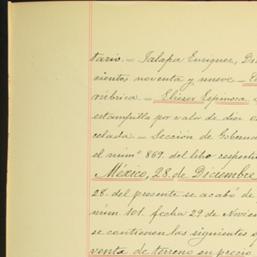 tario. — Jalapa Enriquez, Di
cientos noventa y nueve —
rúbrica. — Eliezer Espinosa
estampilla por valor de diez
celada. — Sección de Goberna
el núm.º 869. del libo respecti
México, 28. de Diciembre
28. del presente se acabó de
núm. 101. fecha 29 de Novie
se contienen las siguientes
venta de terreno en precio